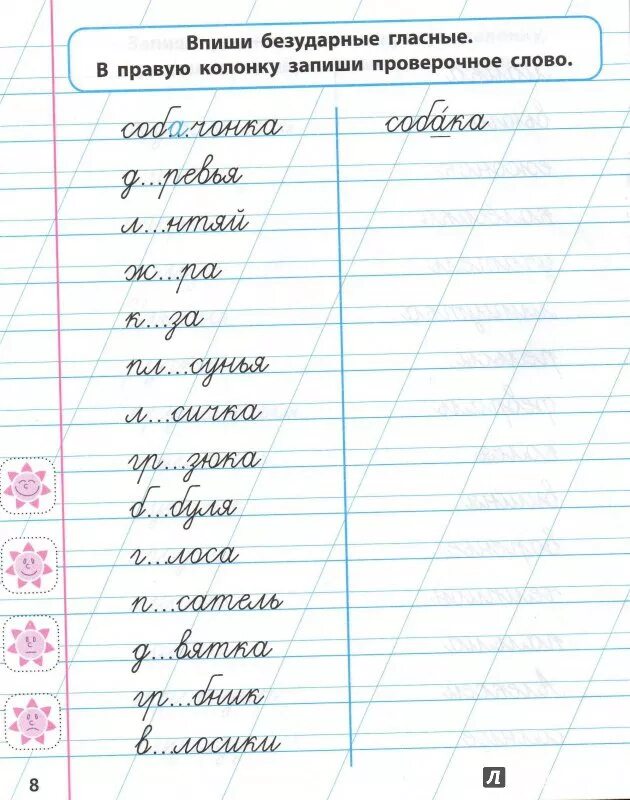 Впиши безударные гласные.
В правую колонку запиши проверочное слово.
собачонка соба́ка
д...ревья
л...нтяй
ж...ра
к...за
пл...сунья
л...сичка
гр...зюка
б...буля
г...лоса
п...сатель
д...вятка
гр...бник
в...лосики
8
Л